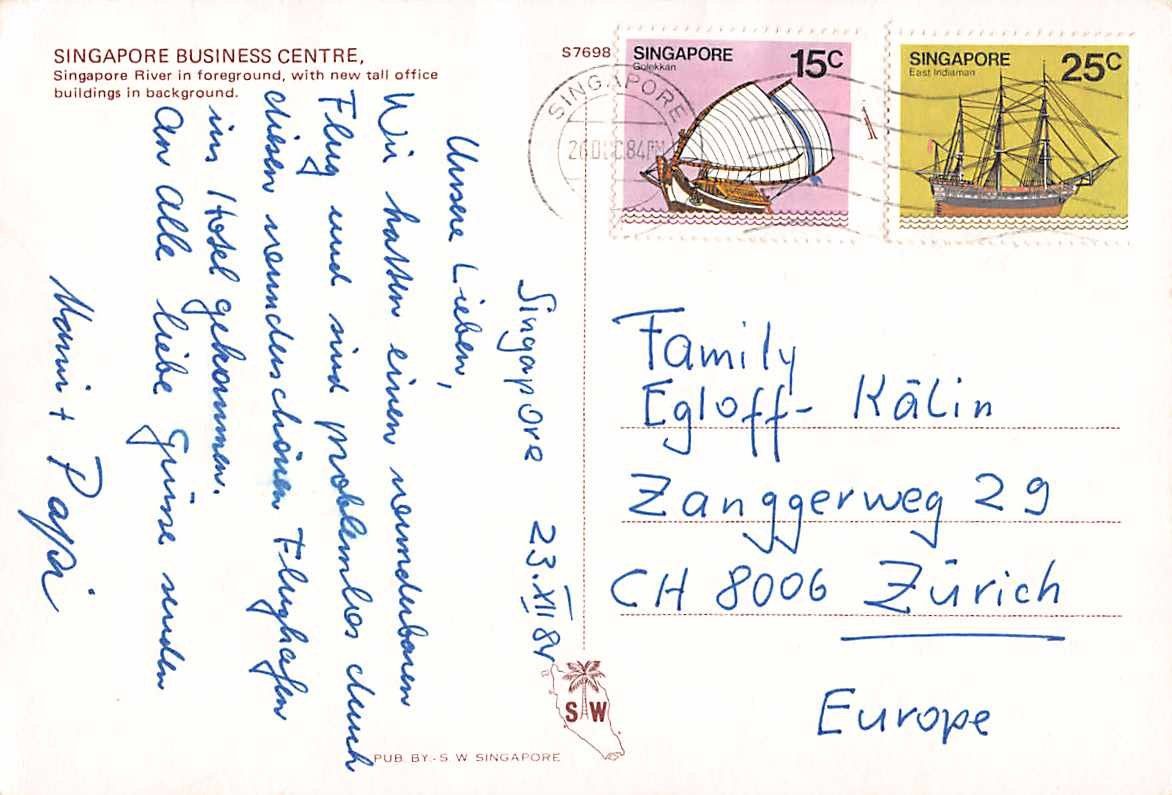 SINGAPORE BUSINESS CENTRE,
Singapore River in foreground, with new tall office
buildings in background.
S7698
SINGAPORE 15C
Golekkan
SINGAPORE 25C
East Indiaman
SINGAPORE
84PM
Singapore 23.XII 84
Unsere Lieben,
Wir hatten einen wunderbaren
Flug und sind problemlos durch
diesen wunderschönen Flughafen
ins Hotel gekommen.
An alle liebe Grüsse senden
Mami + Papi
Family
Egloff-Kälin
Zanggerweg 29
CH 8006 Zürich
Europe
S W
PUB. BY:- S. W. SINGAPORE